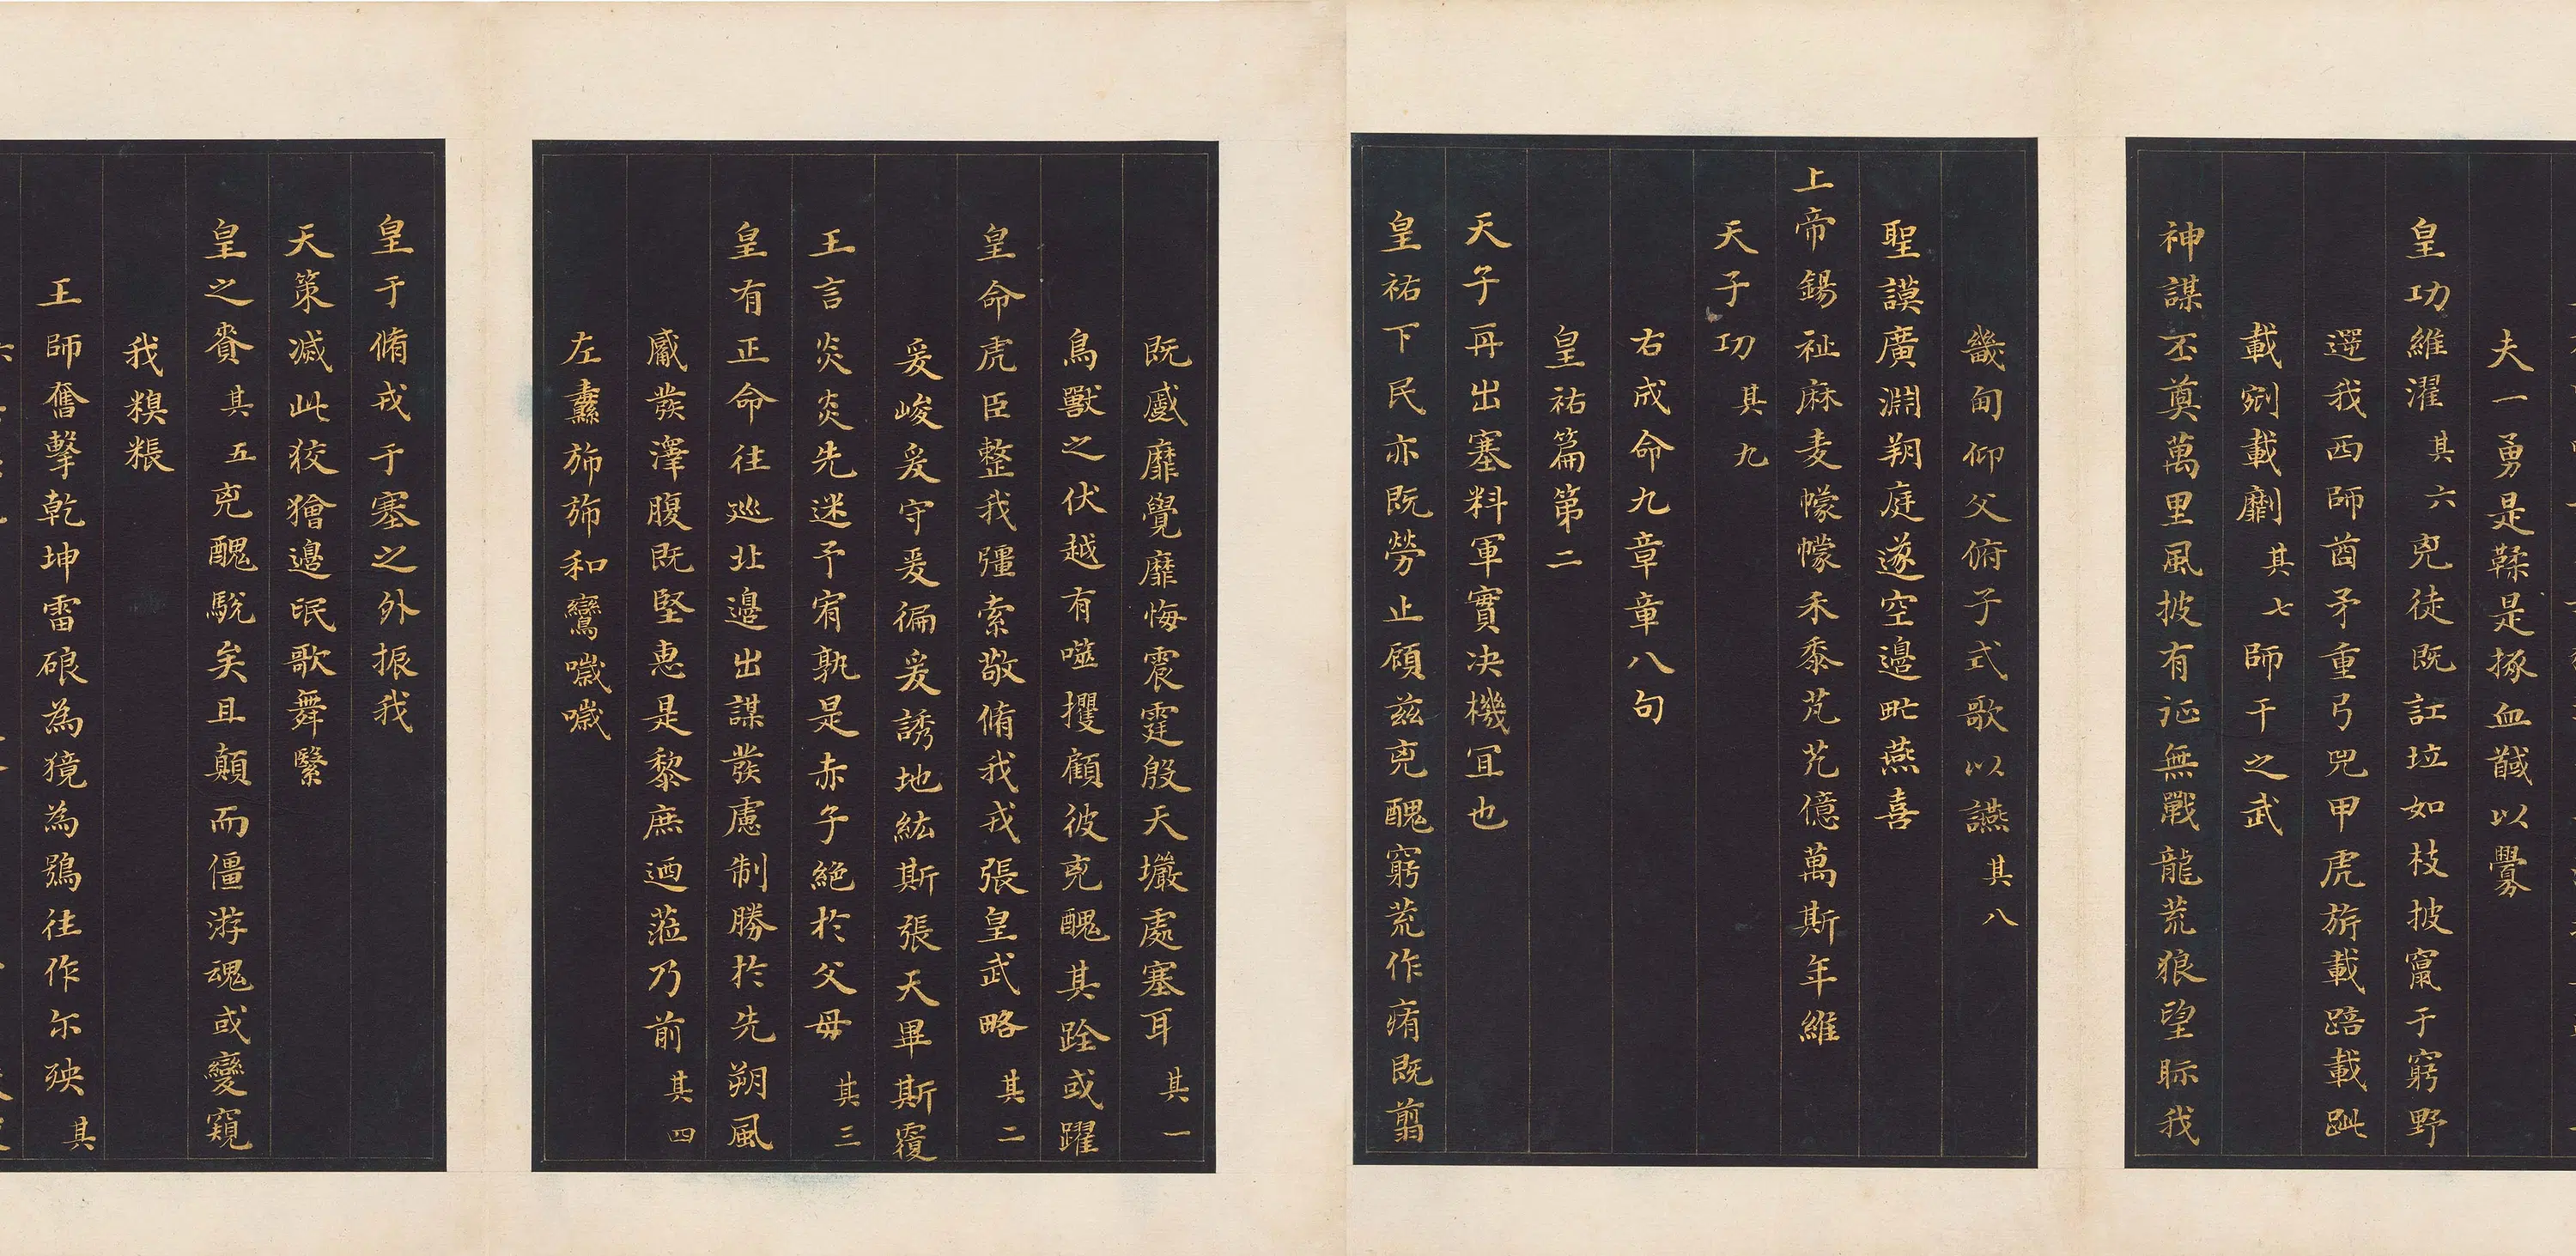 夫一勇是鞣是揼血馘以釁
皇功維濯其六兇徒既訌垃如枝披竄于窮野
選我西師酋矛重弓兕甲虎旂載踣載跐
載剜載劘其七師干之武
神謀丕奠萬里風披有征無戰龍荒狼望眎我
畿甸仰父俯子式歌以讌其八
聖謨廣淵朔庭遂空邊甿燕喜
上帝錫祉麻麦幪幪禾黍芃芃億萬斯年維
天子功其九
右成命九章章八句
皇祐篇第二
天子再出塞料軍實決機宜也
皇祐下民亦既勞止顧兹兇醜窮荒作痏既翦
既蹙靡覺靡悔震霆殷天壧處塞耳其一
鳥獸之伏越有噬攫顧彼兇醜其跧或躍
皇命虎臣整我彊索敬脩我戎張皇武略其二
爰峻爰守爰徧爰誘地紘斯張天畢斯覆
王言炎炎先迷予宥孰是赤子絶於父母其三
皇有正命往巡北邊出謀發慮制勝於先朔風
觱發澤腹既堅惠是黎庶迺蒞乃前其四
左纛斾斾和鸞噦噦
皇于脩戎于塞之外振我
天策滅此狡獪邊氓歌舞繄
皇之賚其五兇醜駾矣且顛而僵游魂或變窺
我糗粻
王師奮擊乾坤雷硠為獍為鴞往作尔殃其